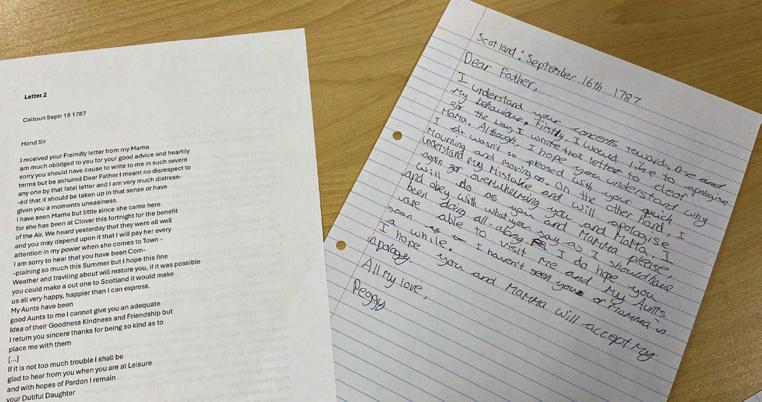 Letter 2
Caltoun Septr 18 1787
Hond Sir
I received your Freindly letter from my Mama
am much obliged to you for your good advice and heartily
sorry you should have cause to write to me in such severe
terms but be ashured Dear Father I meant no disrespect to
any one by that fatal letter and I am very much distress-
-ed that it should be taken up in that sense or have
given you a moments uneasiness.
I have seen Mama but little since she came here
for she has been at Clover this fortnight for the benefit
of the Air. We heard yesterday that they were all well
and you may depend upon it that I will pay her every
attention in my power when she comes to Town -
I am sorry to hear that you have been Com-
-plaining so much this Summer but I hope this fine
Weather and traviling about will restore you, if it was possible
you could make a out one to Scotland it would make
us all very happy, happier than I can express.
My Aunts have been
good Aunts to me I cannot give you an adequate
Idea of their Goodness Kindness and Friendship but
I return you sincere thanks for being so kind as to
place me with them
[...]
If it is not too much trouble I shall be
glad to hear from you when you are at Leisure
and with hopes of Pardon I remain
your Dutiful Daughter
Scotland: September 16th, 1787
Dear Father,
I understand your concerns towards me and
my behaviour. Firstly, I would like to apologise
for the way I wrote that letter to dear
Mama. Although, I hope you understand why
I wasn't so pleased with your quick
mourning and moving on. On the other hand, I
understand my mistake and will apologise
again for overwhelming you and Mama. I
will do as you and Mamma please,
and obey with what you say as I should have
been doing all-along. I do hope you
are able to visit me and my Aunts
soon as I haven't seen you or Mamma in
a while. I hope you and Mamma will accept my
apology.
All my love,
Peggy